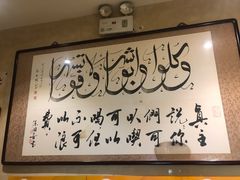 وكلوا واشربوا ولا تسرفوا
真主
說你
們可
以喫
可以
喝但
不可
以浪
費